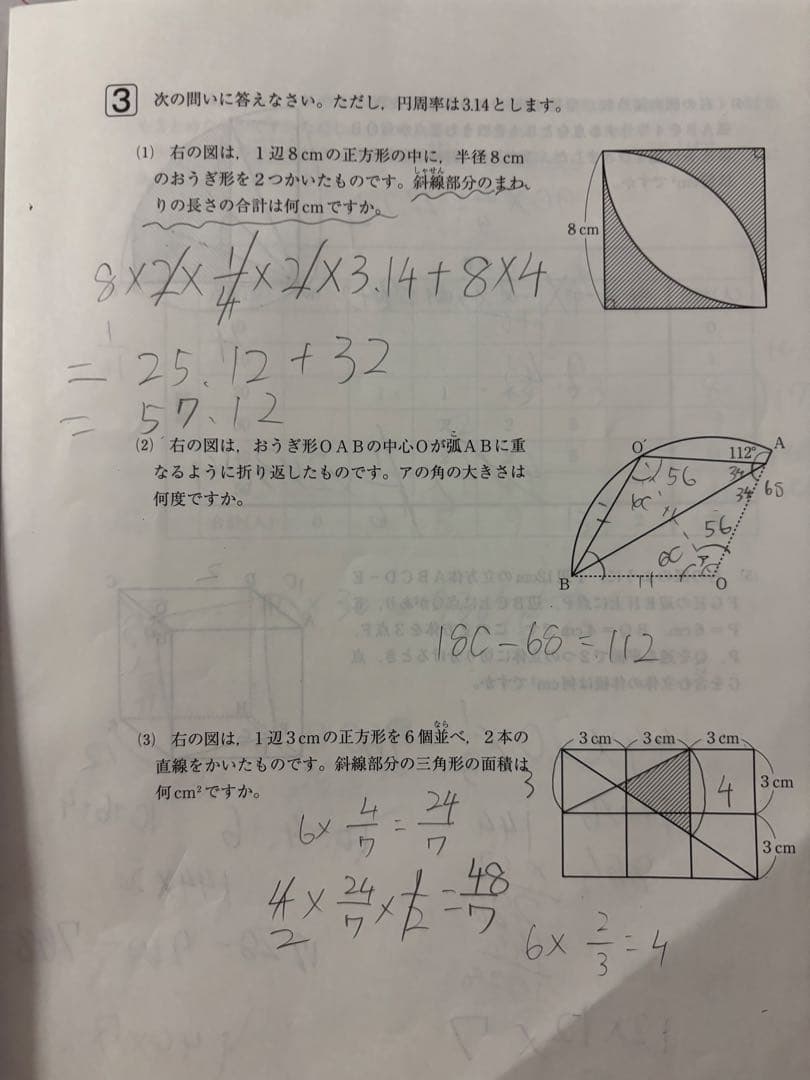 3 次の問いに答えなさい。ただし，円周率は3.14とします。
(1) 右の図は，1辺8cmの正方形の中に，半径8cm
のおうぎ形を2つかいたものです。斜線部分のまわ
しゃせん
りの長さの合計は何cmですか。
8 cm
8×2×1/4×2×3.14+8×4
1
= 25.12+32
= 57.12
(2) 右の図は，おうぎ形OABの中心Oが弧ABに重
こ
なるように折り返したものです。アの角の大きさは
何度ですか。
O′
A
112°
56
34
34
68
56
ア
B
O
180-68=112
(3) 右の図は，1辺3cmの正方形を6個並べ，2本の
なら
直線をかいたものです。斜線部分の三角形の面積は
何cm²ですか。
3 cm 3 cm 3 cm
3 cm
3 cm
4
3
6×4/7=24/7
4×24/7×1/2=48/7
2
6×2/3=4